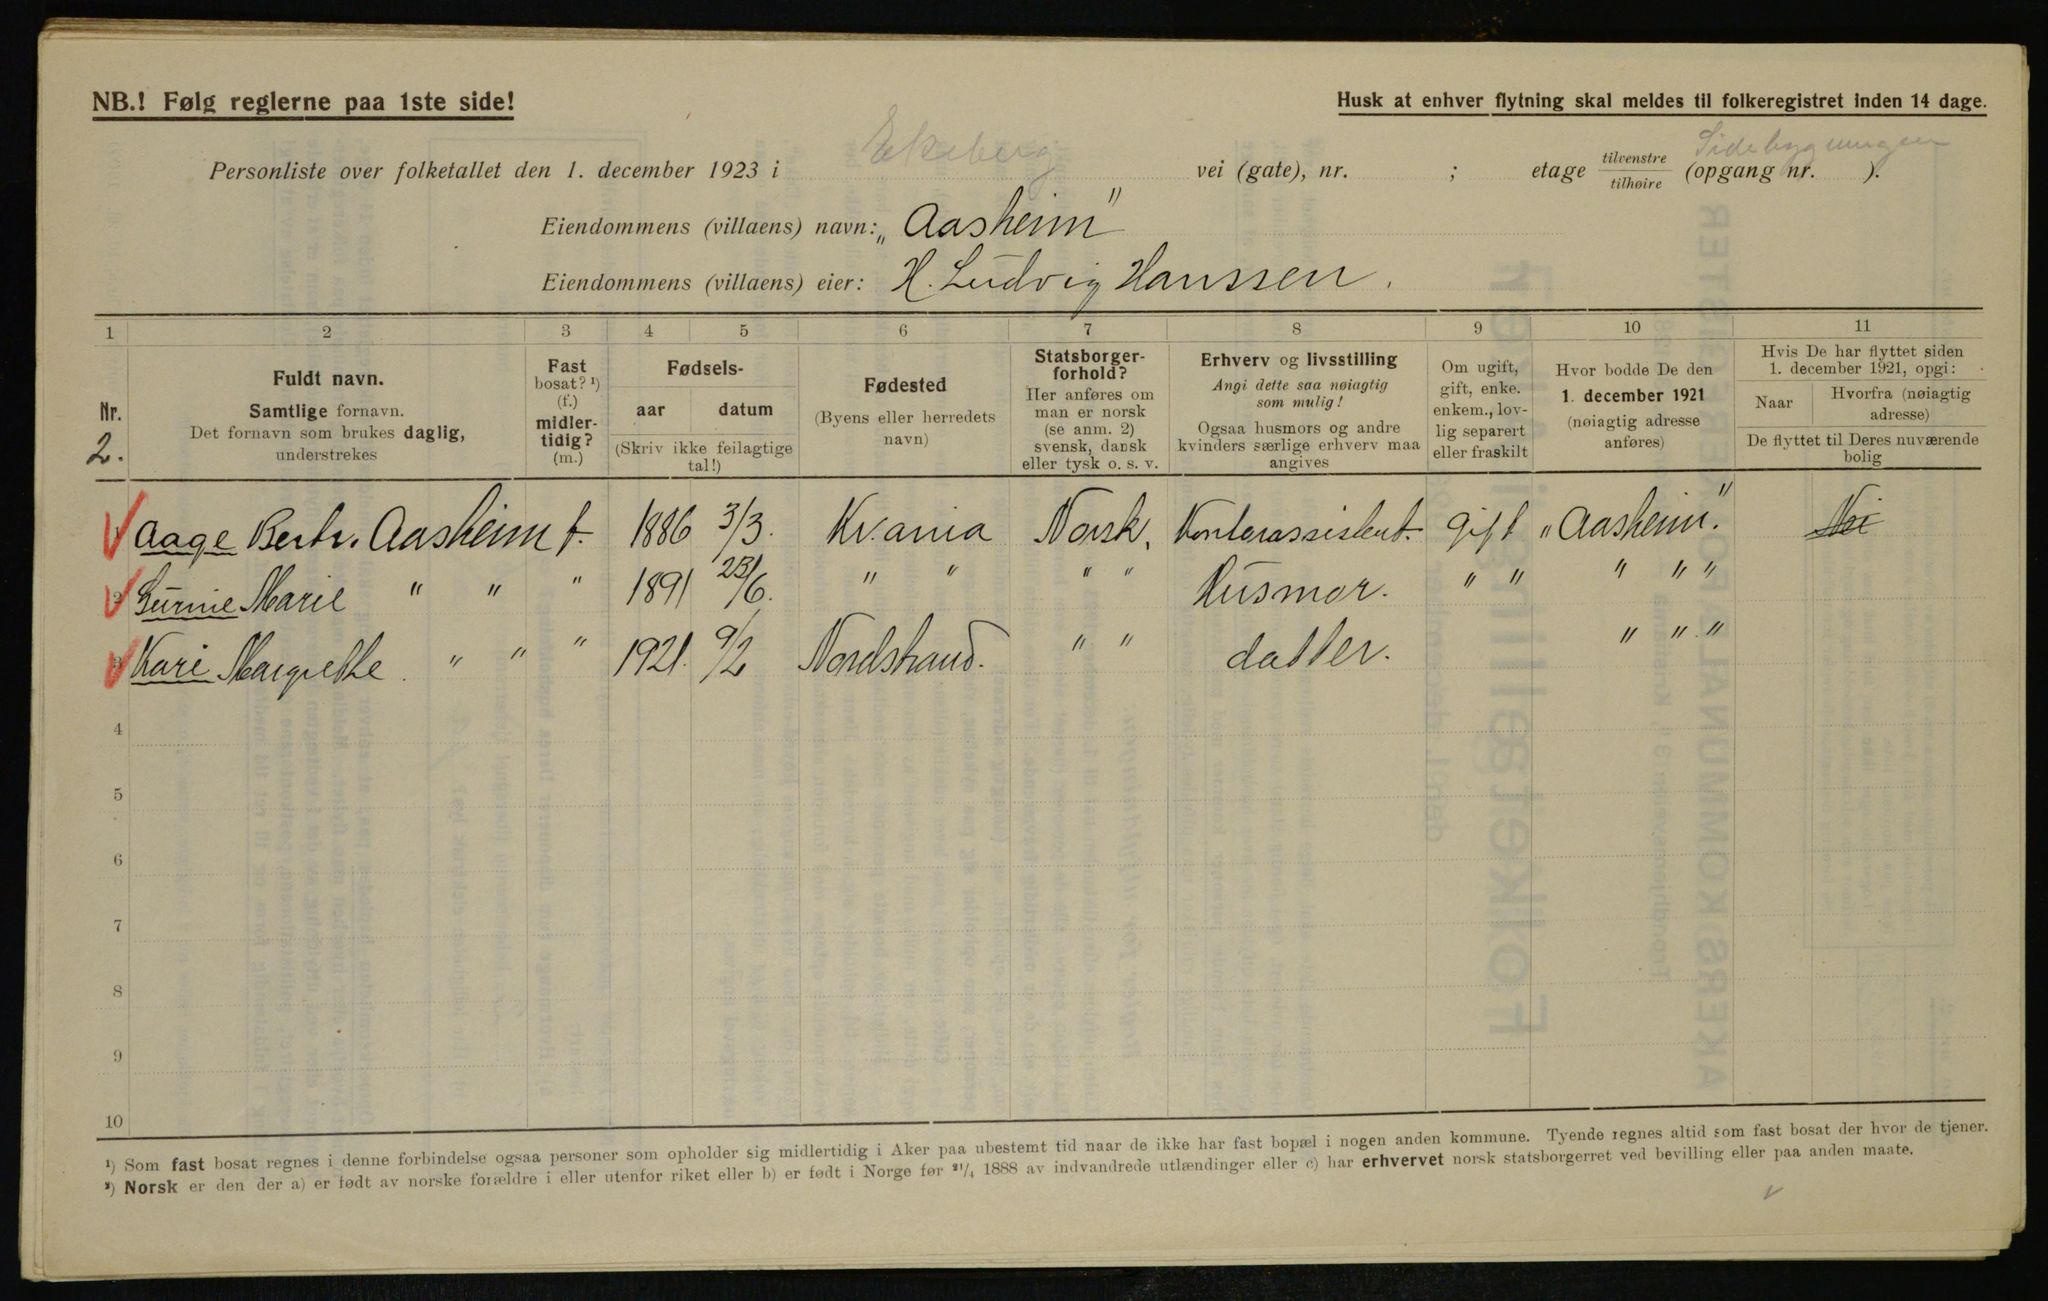 NB.! Følg reglerne paa 1ste side!
Husk at enhver flytning skal meldes til folkeregistret inden 14 dage.
Sidebygningen
Personliste over folketallet den 1. december 1923 i Ekeberg vei (gate), nr. ; etage tilvenstre / tilhøire (opgang nr. ).
Eiendommens (villaens) navn: „Aasheim"
Eiendommens (villaens) eier: H. Ludvig Hanssen.
1 2 3 4 5 6 7 8 9 10 11
Nr.
2.
Fuldt navn.
Samtlige fornavn.
Det fornavn som brukes daglig,
understrekes
Fast
bosat? ¹)
(f.)
midler-
tidig?
(m.)
Fødsels-
aar datum
(Skriv ikke feilagtige
tal!)
Fødested
(Byens eller herredets
navn)
Statsborger-
forhold?
Her anføres om
man er norsk
(se anm. 2)
svensk, dansk
eller tysk o. s. v.
Erhverv og livsstilling
Angi dette saa nøiagtig
som mulig!
Ogsaa husmors og andre
kvinders særlige erhverv maa
angives
Om ugift,
gift, enke.
enkem., lov-
lig separert
eller fraskilt
Hvor bodde De den
1. december 1921
(nøiagtig adresse
anføres)
Hvis De har flyttet siden
1. december 1921, opgi:
Naar
Hvorfra (nøiagtig
adresse)
De flyttet til Deres nuværende
bolig
1 Aage Bertr. Aasheim f. 1886 3/3. Kr.ania Norsk. Kontorassistent. gift „Aasheim". Nei
2 Marie " " " 1891 23/6. " " " " Husmor. " " " " "
3 Kari Margrethe. " " " 1921. 9/2 Nordstrand. " " datter. " " "
4
5
6
7
8
9
10
¹) Som fast bosat regnes i denne forbindelse ogsaa personer som opholder sig midlertidig i Aker paa ubestemt tid naar de ikke har fast bopæl i nogen anden kommune. Tyende regnes altid som fast bosat der hvor de tjener.
²) Norsk er den der a) er født av norske forældre i eller utenfor riket eller b) er født i Norge før ²¹/₄ 1888 av indvandrede utlændinger eller c) har erhvervet norsk statsborgerret ved bevilling eller paa anden maate.